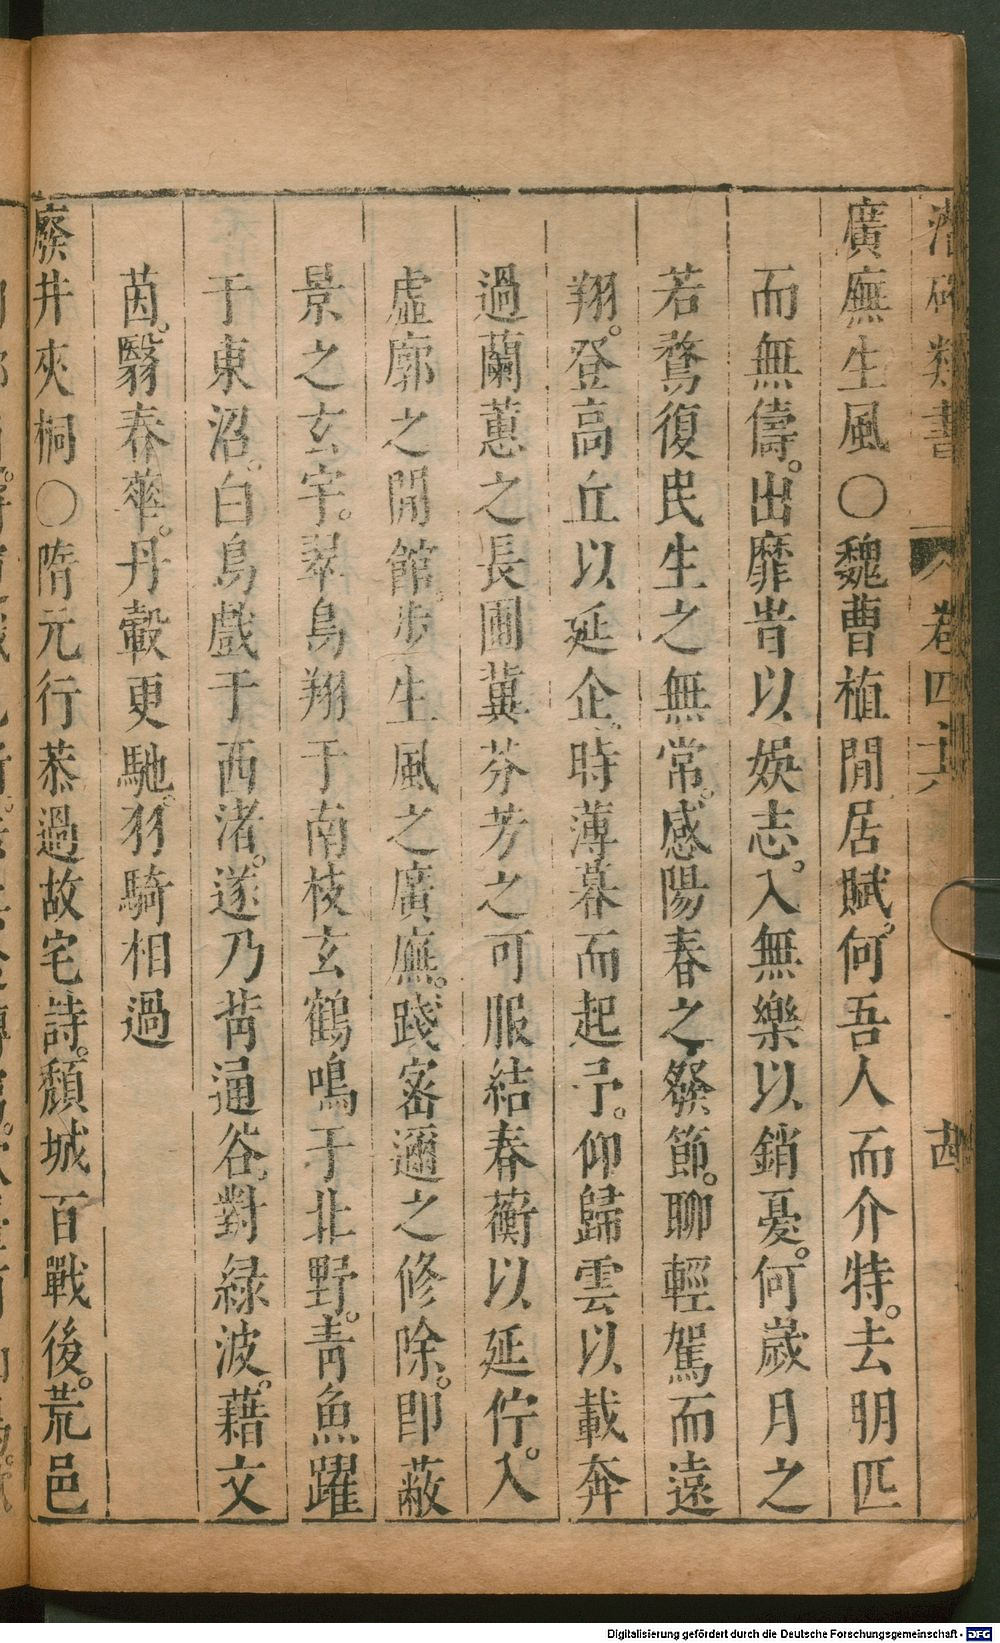 潛確類書 卷四十六 十四
廣廡生風○魏曹植閒居賦。何吾人而介特。去朋匹
而無儔。出靡旹以娛志。入無樂以銷憂。何歲月之
若鶩復民生之無常。感陽春之發節。聊輕駕而遠
翔。登高丘以延企。時薄暮而起予。仰歸雲以載奔
過蘭蕙之長圃冀芬芳之可服結春蘅以延佇。入
虛廓之閒館。步生風之廣廡。踐密邇之修除。即蔽
景之玄宇。翠鳥翔于南枝玄鶴鳴于北野。青魚躍
于東沼。白鳥戲于西渚。遂乃背通谷。對綠波。藉文
茵。翳春華。丹轂更馳。羽騎相過
廢井夾桐○隋元行恭過故宅詩。頹城百戰後。荒邑
Digitalisierung gefördert durch die Deutsche Forschungsgemeinschaft - DFG